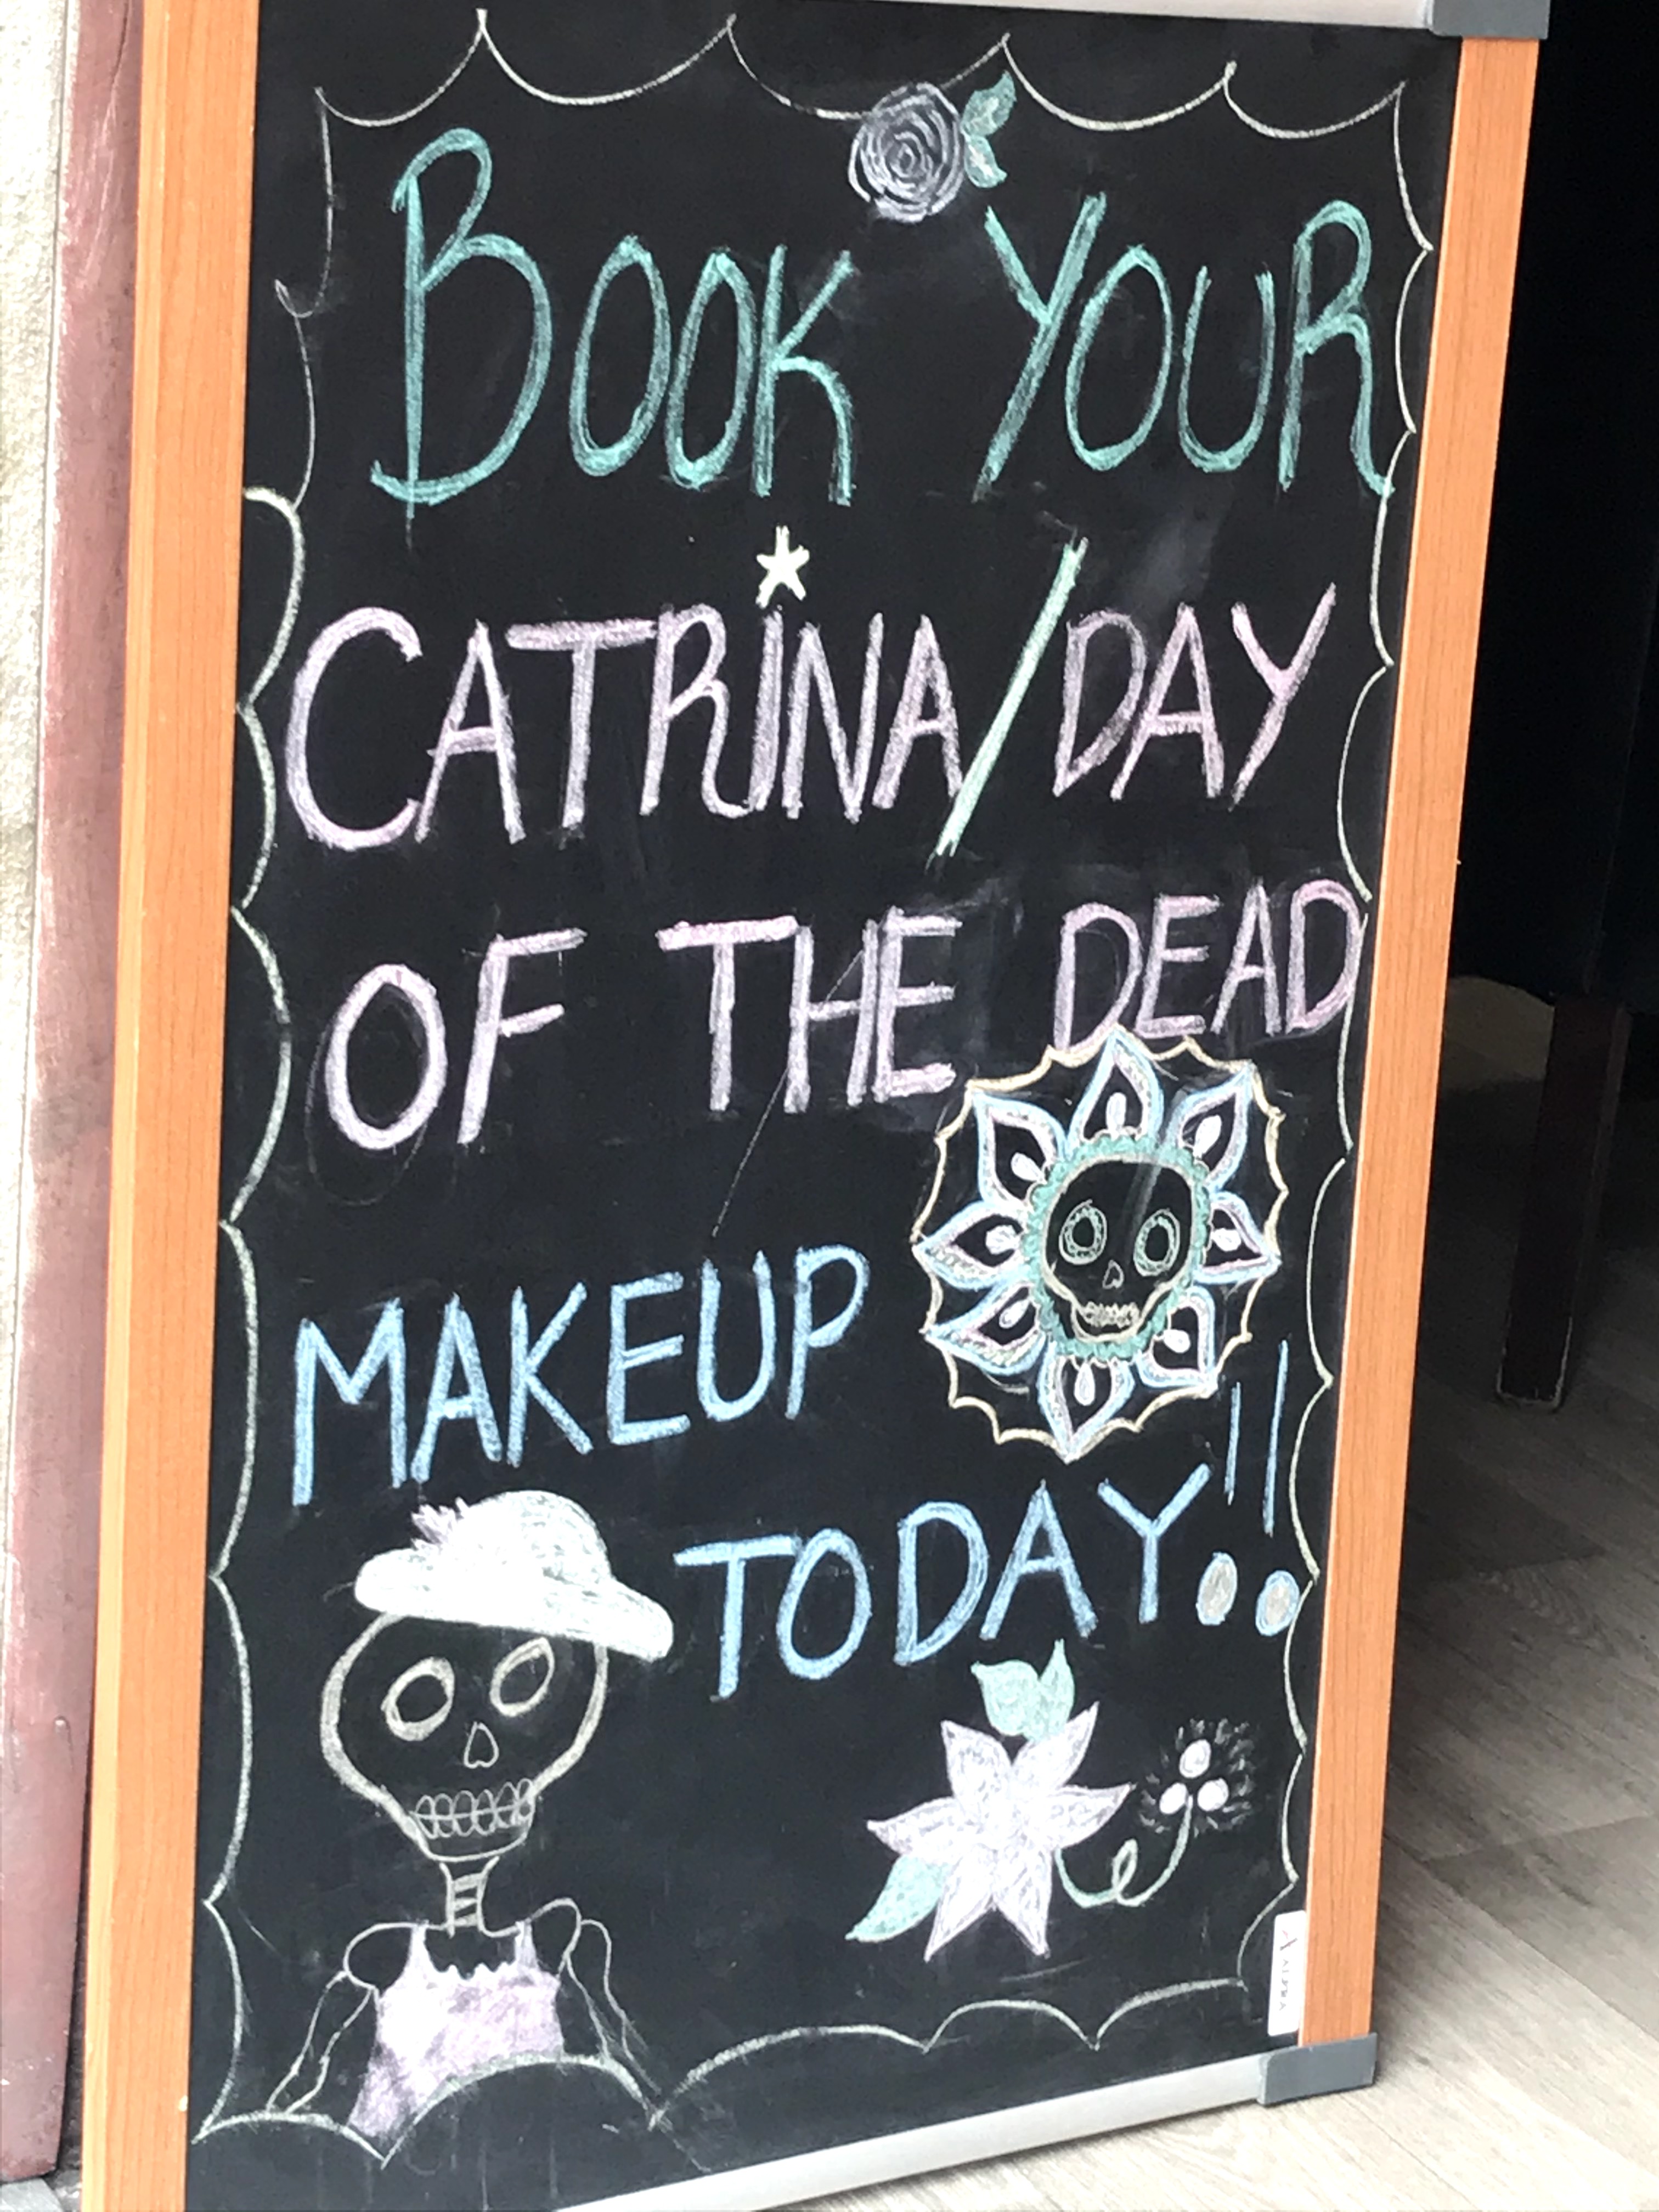 BOOK YOUR
CATRINA/DAY
OF THE DEAD
MAKEUP
TODAY!!